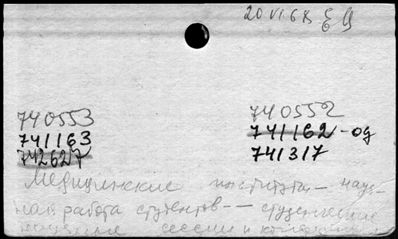 20 VI 68
740553 740552
741163 741162-од
742627 741317
Медицинские институты — науч-
ная работа студентов — студенческие
научные сессии и